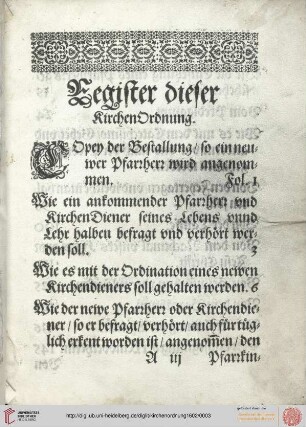 Register dieser
KirchenOrdnung.
COpey der Bestallung/ so ein neu-
wer Pfarrherr wird angenom-
men. Fol. 1
Wie ein ankommender Pfarrherr und
KirchenDiener seines Lebens unnd
Lehr halben befragt und verhört wer-
den soll. 3
Wie es mit der Ordination eines newen
Kirchendieners soll gehalten werden. 6
Wie der newe Pfarrherr oder Kirchendie-
ner/ so er befragt/ verhört/ auch für tüg-
lich erkent worden ist/ angenom̃en/ den
A iij Pfarrkin-
UNIVERSITÄTS-
BIBLIOTHEK
HEIDELBERG
http://digi.ub.uni-heidelberg.de/diglit/kirchenordnung1602/0003